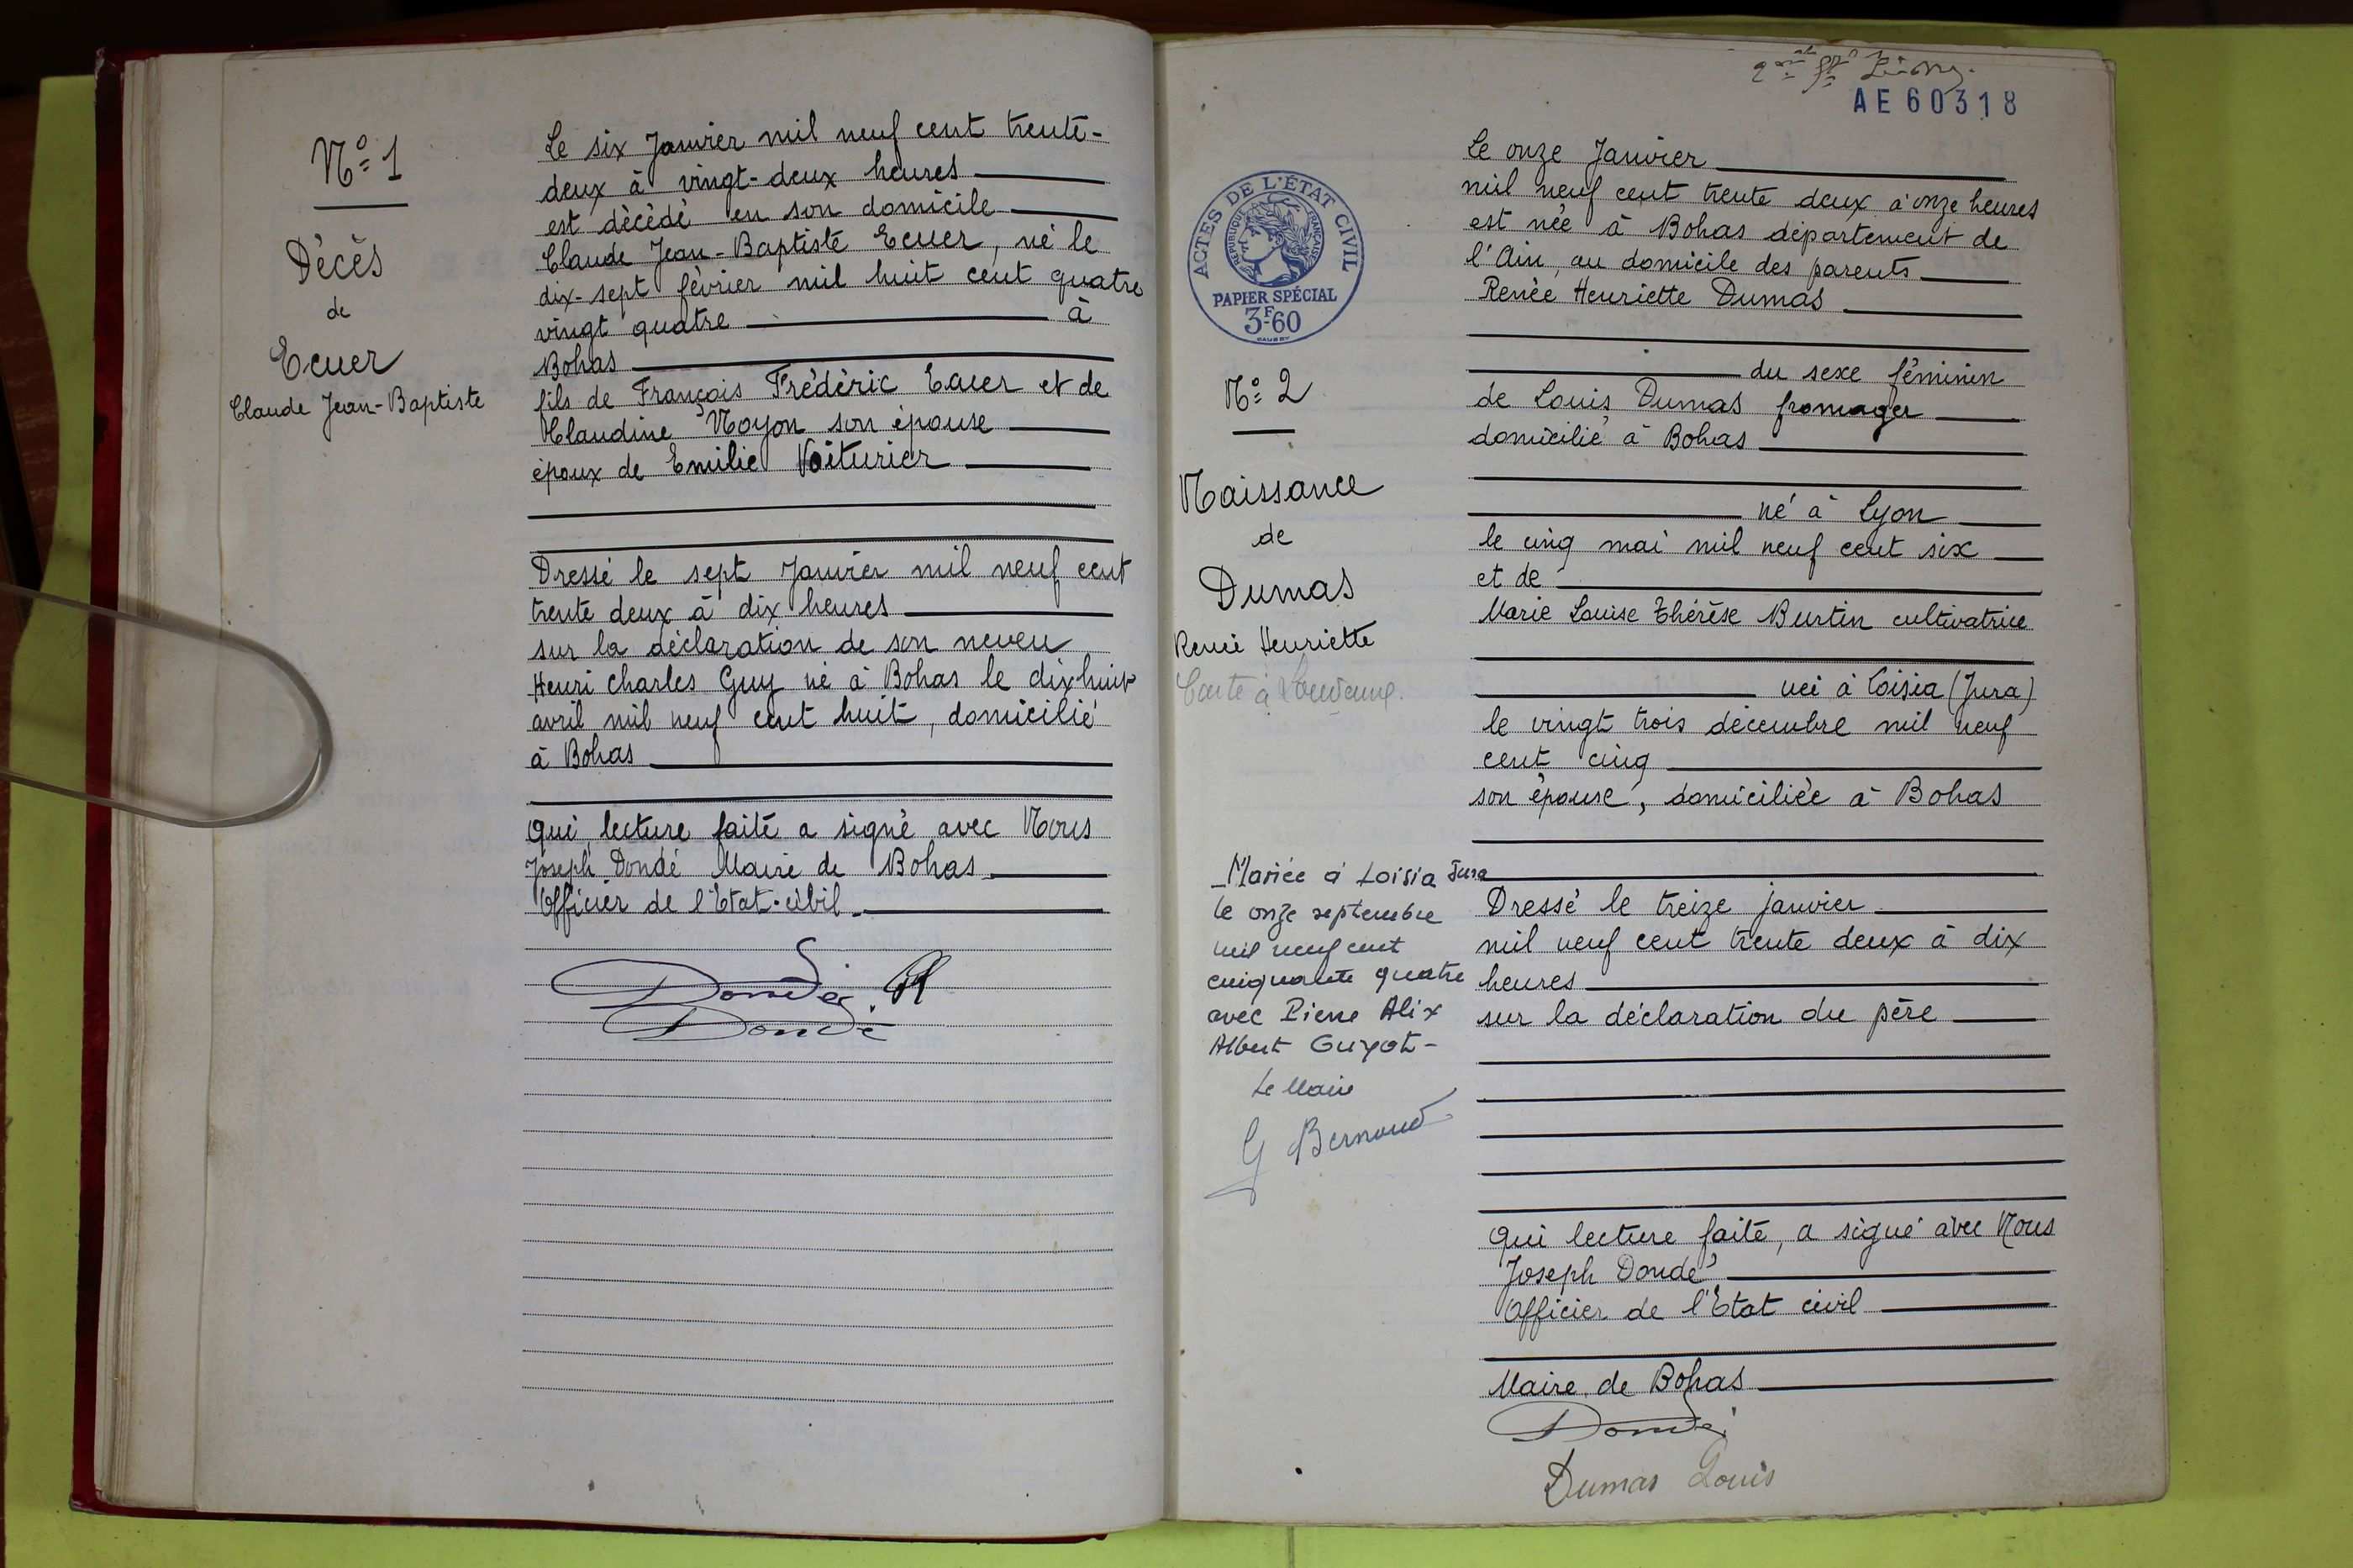 N° 1
Décès
de
Ecuer
Claude Jean-Baptiste
Le six Janvier mil neuf cent trente-
deux à vingt-deux heures
est décédé en son domicile
Claude Jean-Baptiste Ecuer, né le
dix-sept février mil huit cent quatre
vingt quatre à
Bohas
fils de François Frédéric Ecuer et de
Claudine Moyon son épouse
époux de Emilie Voiturier
Dressé le sept Janvier mil neuf cent
trente deux à dix heures
sur la déclaration de son neveu
Henri Charles Guy né à Bohas le dix huit
avril mil neuf cent huit, domicilié
à Bohas
Qui, lecture faite a signé avec Nous
Joseph Dondé Maire de Bohas
Officier de l'Etat-civil
Dondé
AE 60318
ACTES DE L'ÉTAT CIVIL
RÉPUBLIQUE FRANÇAISE
PAPIER SPÉCIAL
3F60
N° 2
Naissance
de
Dumas
Renée Henriette
Carte à
Mariée à Loisia Jura
le onze septembre
mil neuf cent
cinquante quatre
avec Pierre Alix
Albert Guyot-
Le Maire
G Bernoud
Le onze Janvier
mil neuf cent trente deux à onze heures
est née à Bohas département de
l'Ain, au domicile des parents
Renée Henriette Dumas
du sexe féminin
de Louis Dumas fromager
domicilié à Bohas
né à Lyon
le cinq mai mil neuf cent six
et de
Marie Louise Thérèse Burtin cultivatrice
née à Loisia (Jura)
le vingt trois décembre mil neuf
cent cinq
son épouse, domiciliée à Bohas
Dressé le treize janvier
mil neuf cent trente deux à dix
heures
sur la déclaration du père
Qui lecture faite, a signé avec Nous
Joseph Dondé
Officier de l'Etat civil
Maire de Bohas
Dondé
Dumas Louis